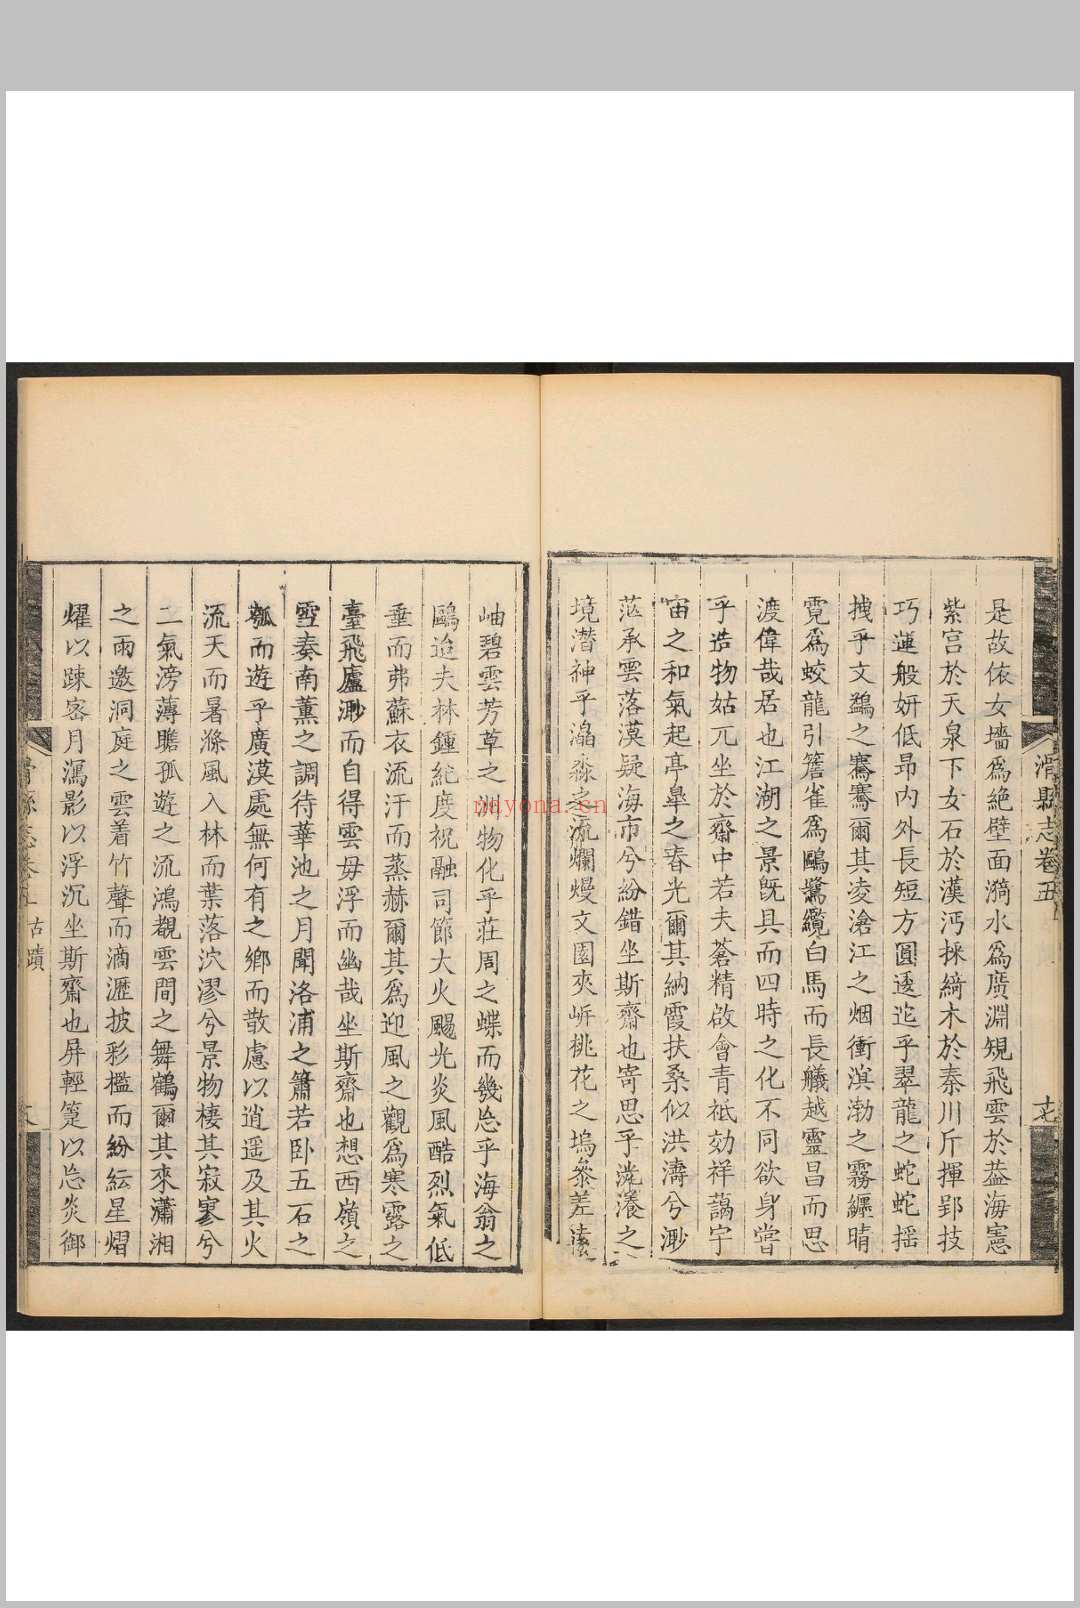 滑縣志卷五
十七
是故依女墻爲絶壁面漪水爲廣淵規飛雲於葢海憲
紫宫於天泉下女石於漢沔採綺木於秦川斤揮郢技
巧運般妍低昻内外長短方圓逶迤乎翠龍之蛇蛇揺
拽乎文鷁之騫騫爾其凌滄江之烟衝溟渤之霧纚晴
霓爲蛟龍引簷雀爲鷗鷺纜白馬而長艤越靈昌而思
渡偉哉居也江湖之景旣具而四時之化不同欲身嘗
乎造物姑兀坐於齋中若夫蒼精啟會青祗効祥藹宇
宙之和氣起亭皐之春光爾其納霞扶桑似洪濤兮渺
茫承雲落漠疑海市兮紛錯坐斯齋也寄思乎瀁之
境潜神乎淼之流爛熳文園夾㟁桃花之塢叅差
岫碧雲芳草之洲物化乎莊周之蝶而幾忘乎海翁之
鷗迨夫林鍾絶度祝融司節大火颺光炎風酷烈氣低
垂而弗蘇衣流汗而蒸赫爾其爲迎風之觀爲寒露之
臺飛廬渺而自得雲毋浮而幽哉坐斯齋也想西嶺之
雪奏南薰之調待華池之月聞洛浦之簫若卧五石之
瓠而遊乎廣漠處無何有之鄉而散慮以逍遥及其火
流天而暑滌風入林而葉落泬漻兮景物棲其寂寥兮
二氣滂薄瞻孤遊之流鴻覩雲間之舞鶴爾其來瀟湘
之雨邀洞庭之雲着竹聲而滴瀝披彩檻而紛紜星熠
燿以踈密月瀉影以浮沉坐斯齋也屏輕箑以忘炎御
滑縣志卷五
古蹟
nayona.cn